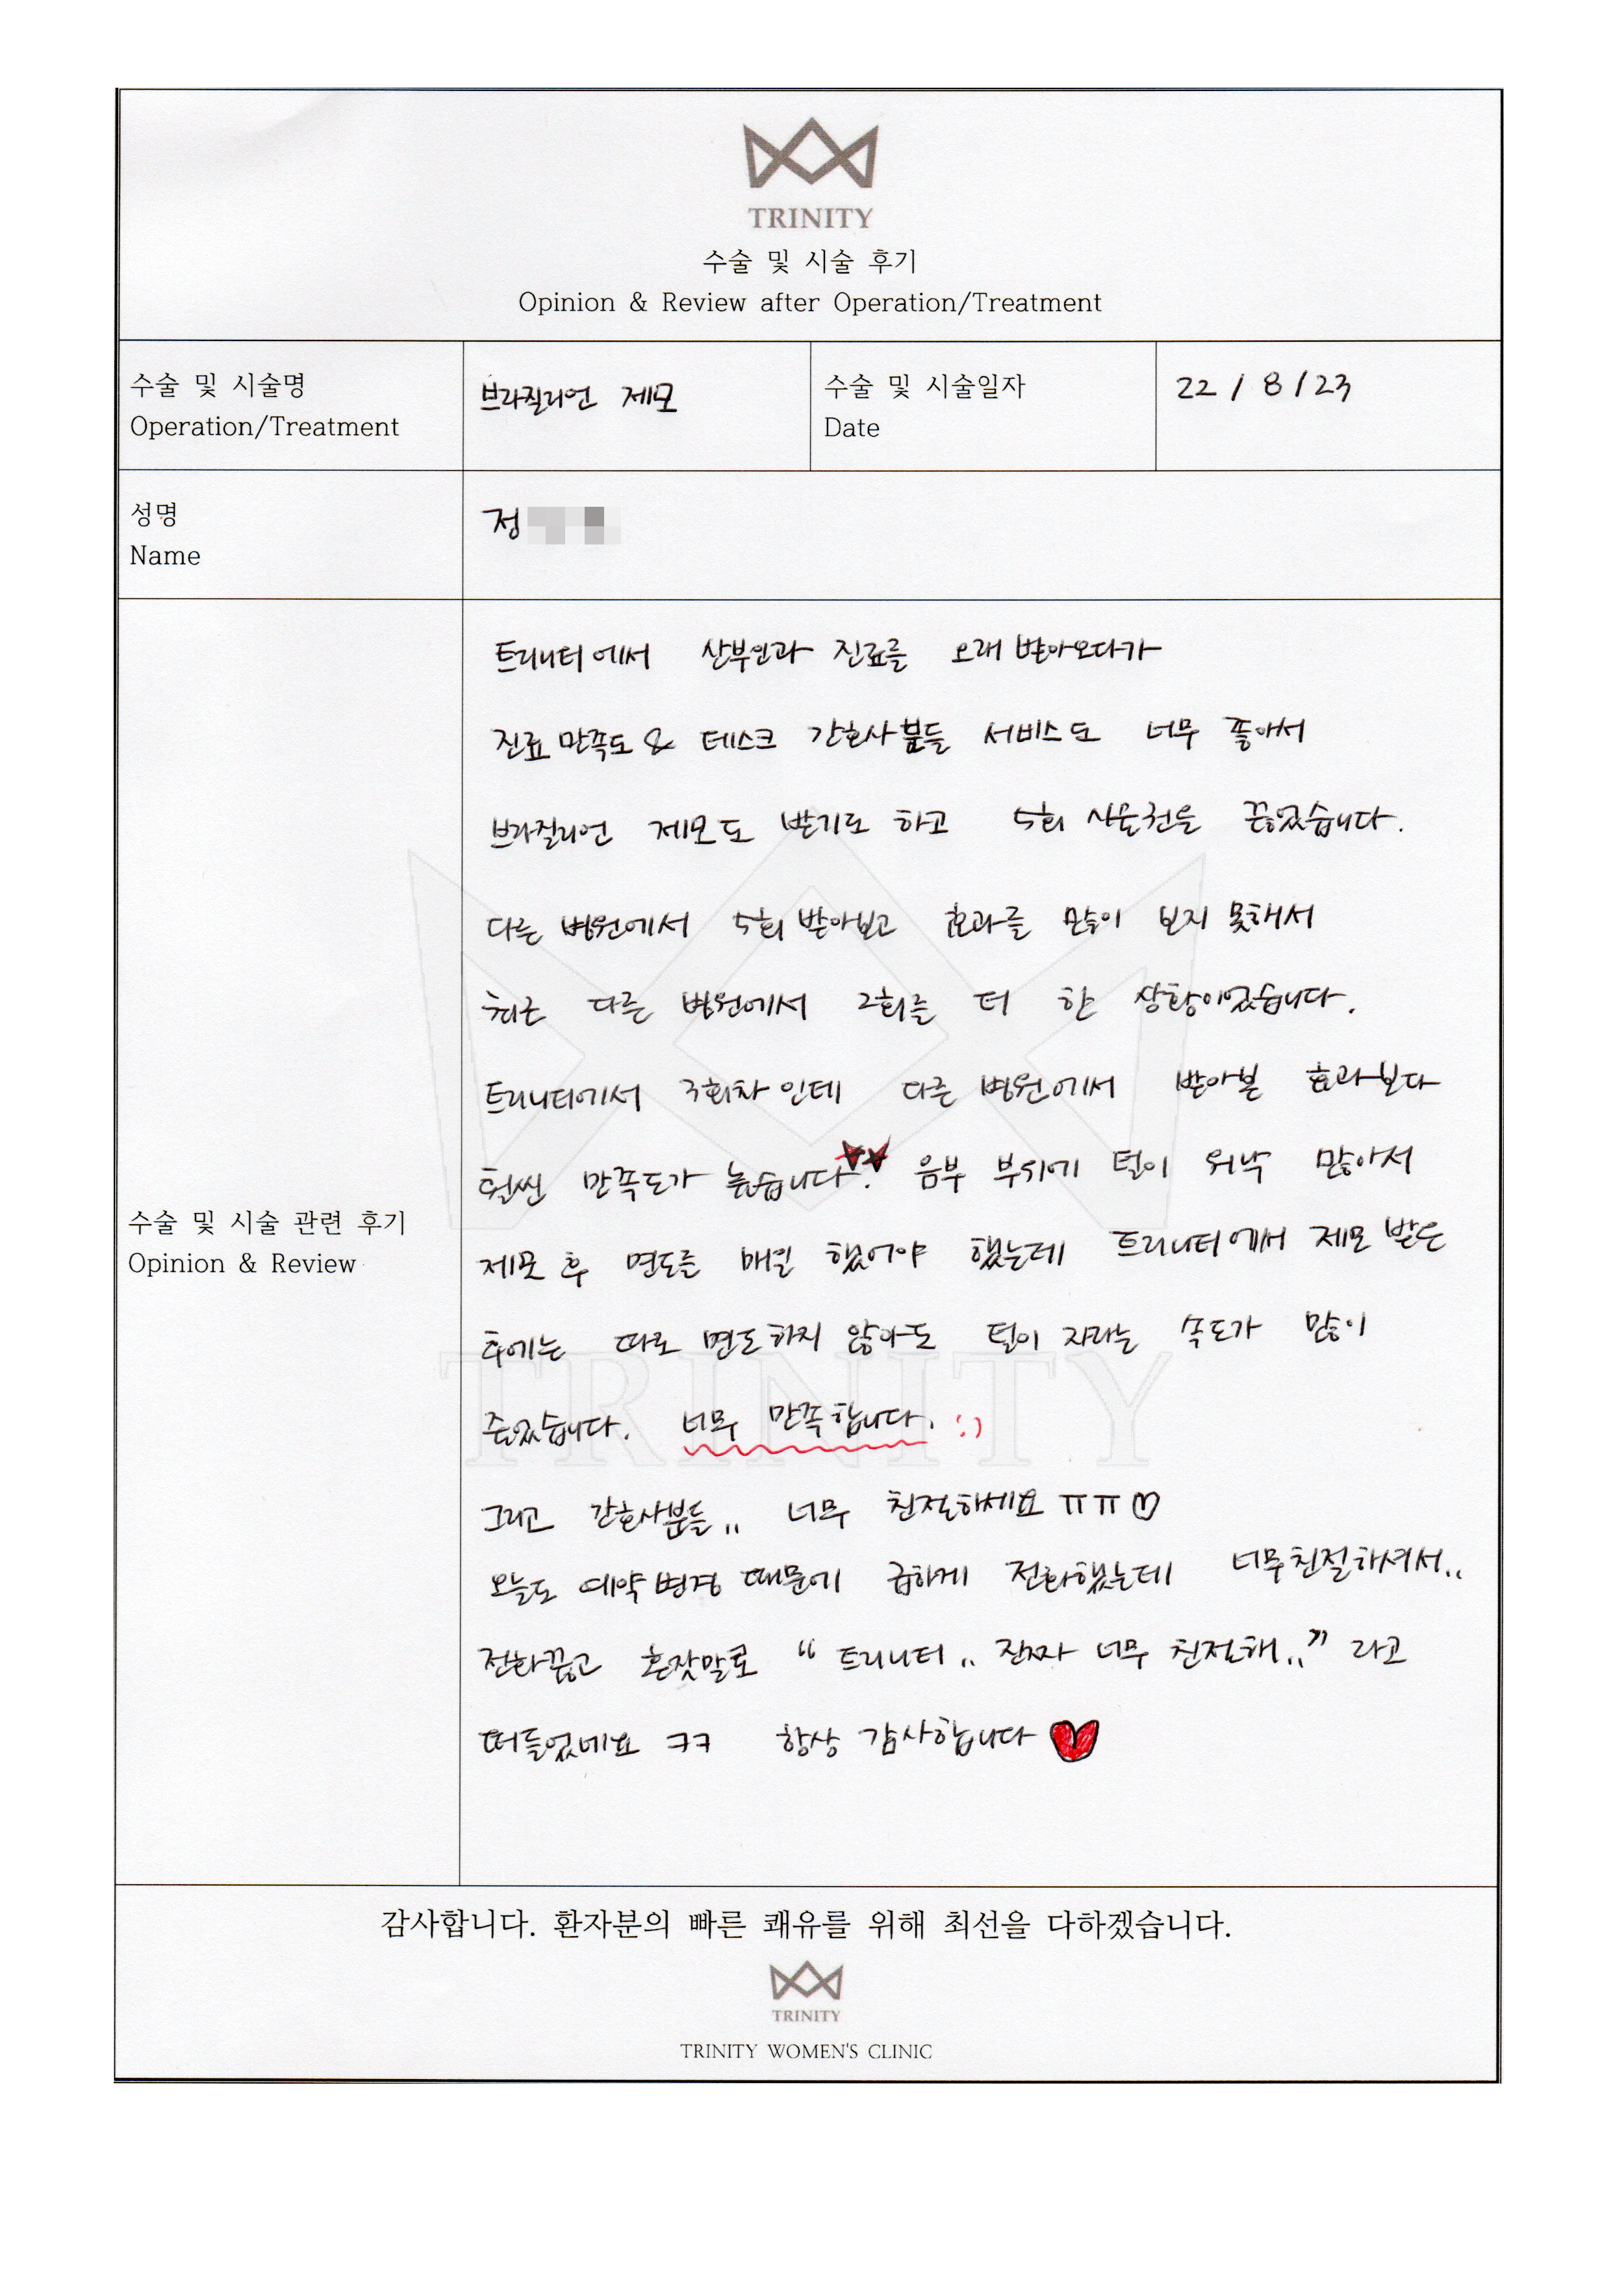 TRINITY
수술 및 시술 후기
Opinion & Review after Operation/Treatment
수술 및 시술명
Operation/Treatment
브라질리언 제모
수술 및 시술일자
Date
22 / 8 / 23
성명
Name
정
수술 및 시술 관련 후기
Opinion & Review
트리니티에서 산부인과 진료를 오래 받아오다가
진료 만족도 & 데스크 간호사분들 서비스도 너무 좋아서
브라질리언 제모도 받기로 하고 5회 시술권을 끊었습니다.
다른 병원에서 5회 받아보고 효과를 많이 보지 못해서
최근 다른 병원에서 2회를 더 한 상황이었습니다.
트리니티에서 3회차인데 다른 병원에서 받아본 효과보다
훨씬 만족도가 높습니다. 음부 부위에 털이 워낙 많아서
제모 후 면도를 매일 했어야 했는데 트리니티에서 제모 받은
후에는 따로 면도하지 않아도 털이 자라는 속도가 많이
줄었습니다. 너무 만족합니다. :)
그리고 간호사분들.. 너무 친절하세요 ㅠㅠ♡
오늘도 예약변경 때문에 급하게 전화했는데 너무친절하셔서..
전화끊고 혼잣말로 “트리니티.. 진짜 너무 친절해..” 라고
떠들었네요 ㅋㅋ 항상 감사합니다 ♥
TRINITY
감사합니다. 환자분의 빠른 쾌유를 위해 최선을 다하겠습니다.
TRINITY
TRINITY WOMEN'S CLINIC